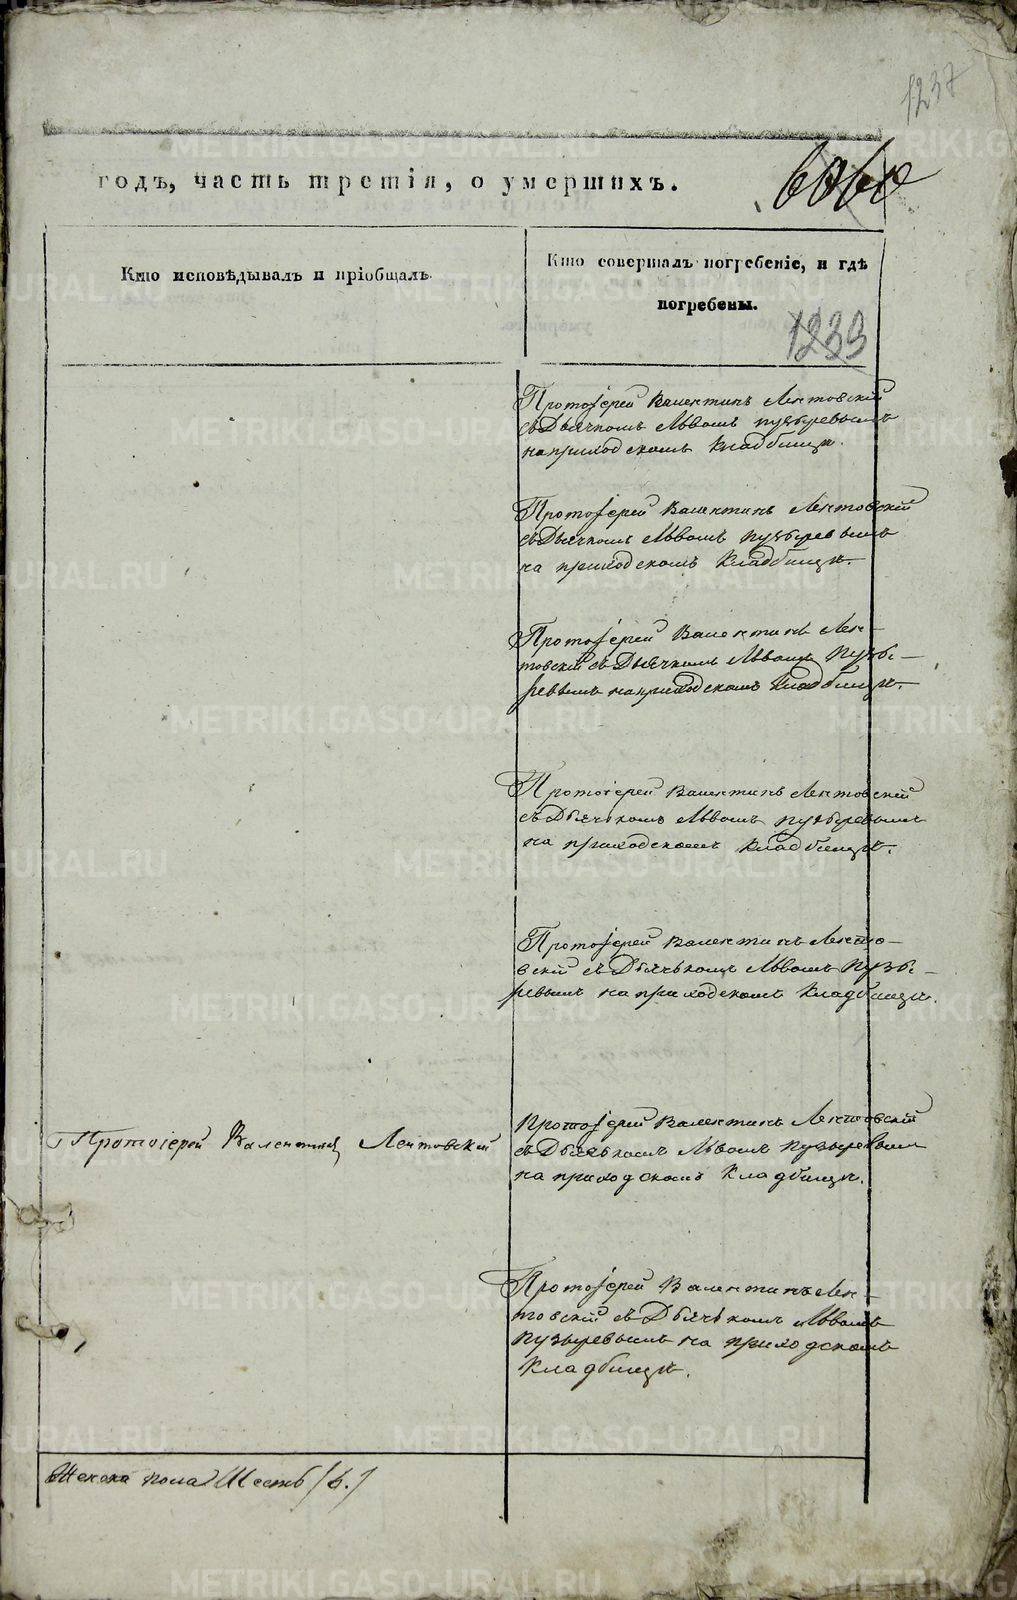 1237
годъ, часть третія, о умершихъ.
Кто исповѣдывалъ и пріобщалъ.
Кто совершалъ погребеніе, и гдѣ
погребены.
1233
Протоіерей Валентинъ Лентовскій
съ Дьячкомъ Львомъ пузыревымъ
на приходскомъ Кладбищѣ.
Протоіерей Валентинъ Лентовскій
съ Дьячкомъ Львомъ пузыревымъ
на приходскомъ Кладбищѣ.
Протоіерей Валентинъ Лен-
товскій съ Дьячкомъ Львомъ Пузы-
ревымъ на приходскомъ Кладбищѣ.
Протоіерей Валентинъ Лентовскій
съ Дьячкомъ Львомъ пузыревымъ
на приходскомъ Кладбищѣ.
Протоіерей Валентинъ Ленто-
вскій съ Дьячькомъ Львомъ Пузы-
ревымъ на приходскомъ Кладбищѣ.
Протоіерей Валентинъ Лентовскій
Протоіерей Валентинъ Лентовскій
съ Дьячькомъ Львомъ Пузыревымъ
на приходскомъ Кладбищѣ.
Протоіерей Валентинъ Лен-
товскій съ Дьячькомъ Львомъ
Пузыревымъ на приходскомъ
Кладбищѣ.
Женска пола Шесть /6./
METRIKI.GASO-URAL.RU